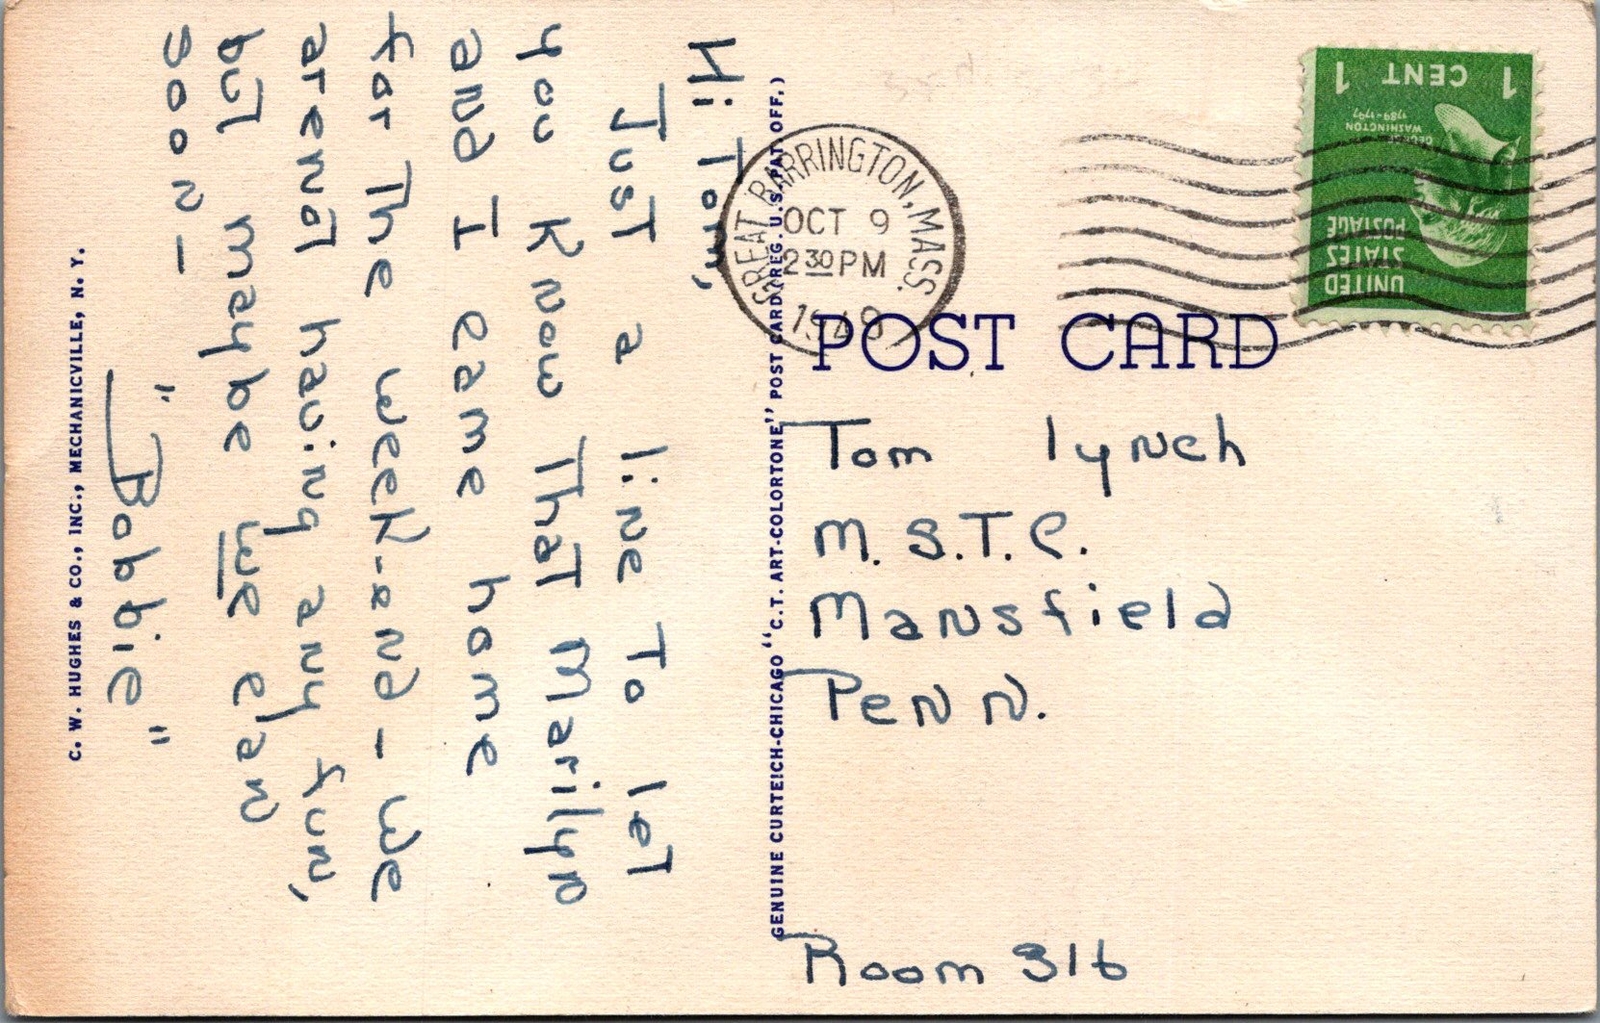 Hi Tom,
Just a line to let
you know that Marilyn
and I came home
for the week-end - We
arenat having any fun,
but maybe we can
soon -
"Bobbie"
C. W. HUGHES & CO., INC., MECHANICVILLE, N. Y.
GENUINE CURTEICH-CHICAGO "C.T. ART-COLORTONE" POST CARD (REG. U.S. PAT. OFF.)
GREAT BARRINGTON, MASS.
OCT 9
2 30 PM
1948
1 CENT 1
GEORGE
WASHINGTON
1789-1797
UNITED
STATES
POSTAGE
POST CARD
Tom lynch
M. S. T. C.
Mansfield
Penn.
Room 316